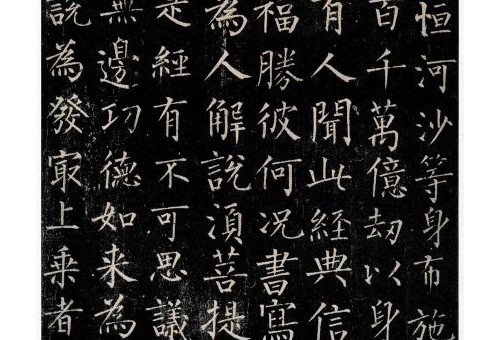 恒河沙等身布施
百千萬億劫以身
有人聞此經典信
福勝彼何况書寫
為人解說須菩提
是經有不可思議
無邊功德如来為
說為發冣上乗者